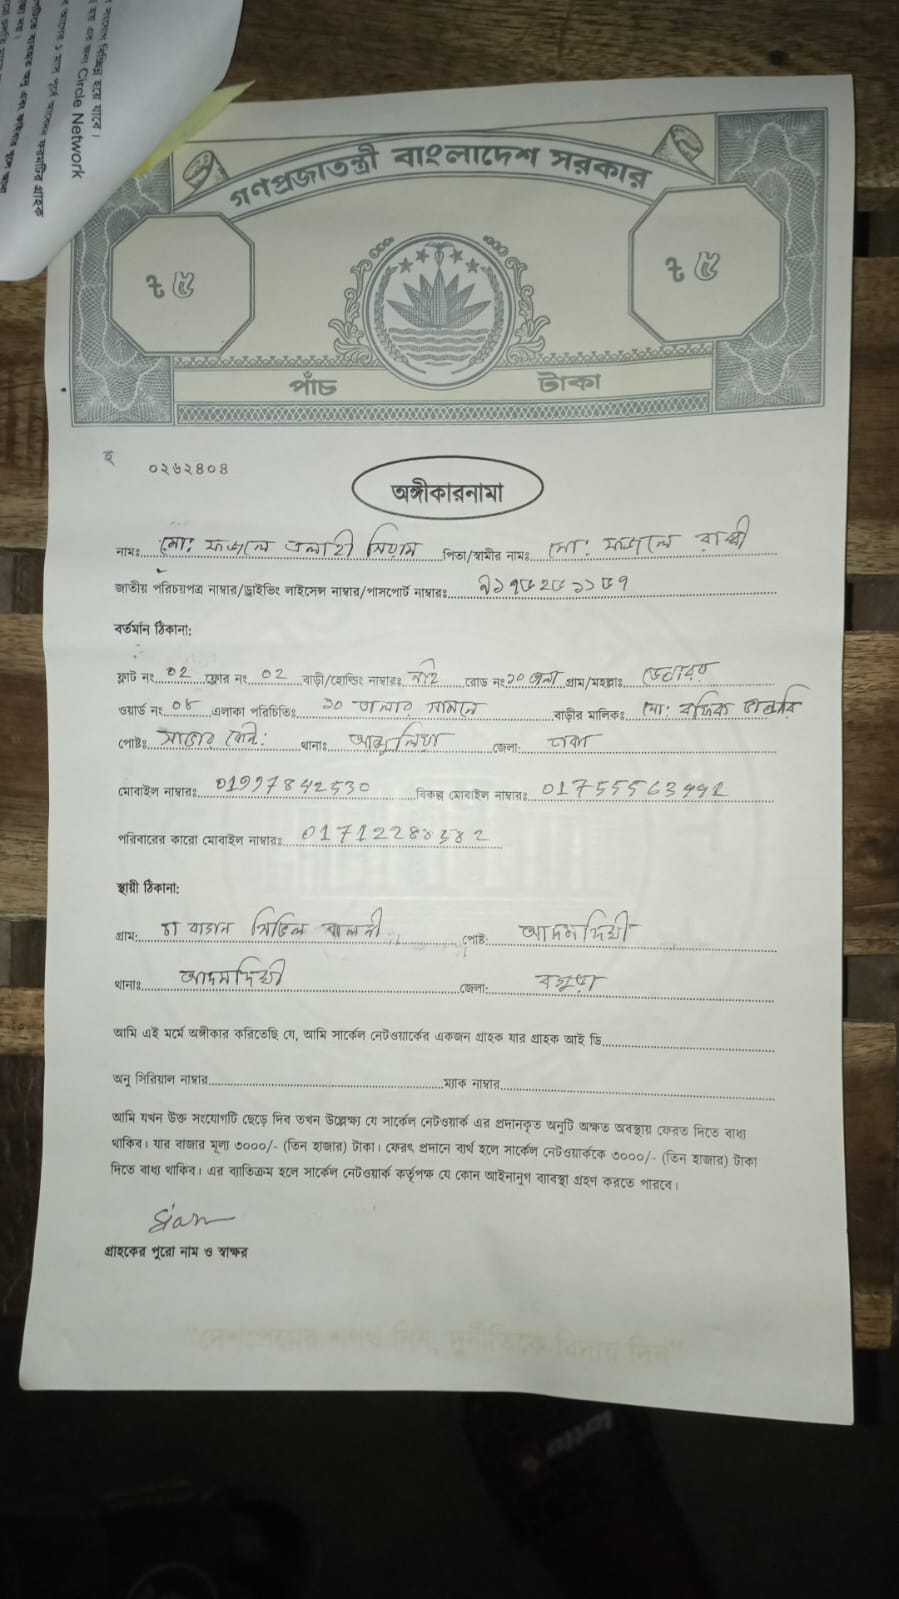 Circle Network
গণপ্রজাতন্ত্রী বাংলাদেশ সরকার
৳ ৫ ৳ ৫
পাঁচ টাকা
০২৬২৪০৪
অঙ্গীকারনামা
নামঃ মো: ফজলে এলাহী সিয়াম পিতা/স্বামীর নাম: মো: ফজলে রাব্বী
জাতীয় পরিচয়পত্র নাম্বার/ড্রাইভিং লাইসেন্স নাম্বার/পাসপোর্ট নাম্বারঃ
বর্তমান ঠিকানা:
ফ্লাট নং 02 ফ্লোর নং 02 বাড়ী/হোল্ডিং নাম্বারঃ নাই রোড নং ১০ তলা গ্রাম/মহল্লাঃ
ওয়ার্ড নং 08 এলাকা পরিচিতিঃ ১০ তলার সামনে বাড়ীর মালিকঃ মো: রফিক
পোষ্টঃ সাভার থানাঃ আশুলিয়া জেলা: ঢাকা
মোবাইল নাম্বারঃ বিকল্প মোবাইল নাম্বারঃ
পরিবারের কারো মোবাইল নাম্বারঃ
স্থায়ী ঠিকানা:
গ্রাম: সিভিল পোষ্ট: আদমদিঘী
থানাঃ আদমদিঘী জেলা: বগুড়া
আমি এই মর্মে অঙ্গীকার করিতেছি যে, আমি সার্কেল নেটওয়ার্কের একজন গ্রাহক যার গ্রাহক আই ডি
অনু সিরিয়াল নাম্বার ম্যাক নাম্বার
আমি যখন উক্ত সংযোগটি ছেড়ে দিব তখন উল্লেক্ষ্য যে সার্কেল নেটওয়ার্ক এর প্রদানকৃত অনুটি অক্ষত অবস্থায় ফেরত দিতে বাধ্য
থাকিব। যার বাজার মূল্য ৩০০০/- (তিন হাজার) টাকা। ফেরৎ প্রদানে ব্যর্থ হলে সার্কেল নেটওয়ার্ককে ৩০০০/- (তিন হাজার) টাকা
দিতে বাধ্য থাকিব। এর ব্যতিক্রম হলে সার্কেল নেটওয়ার্ক কর্তৃপক্ষ যে কোন আইনানুগ ব্যাবস্থা গ্রহণ করতে পারবে।
Siam
গ্রাহকের পুরো নাম ও স্বাক্ষর
"দেশপ্রেমের শপথ নিন, দুর্নীতিকে বিদায় দিন"